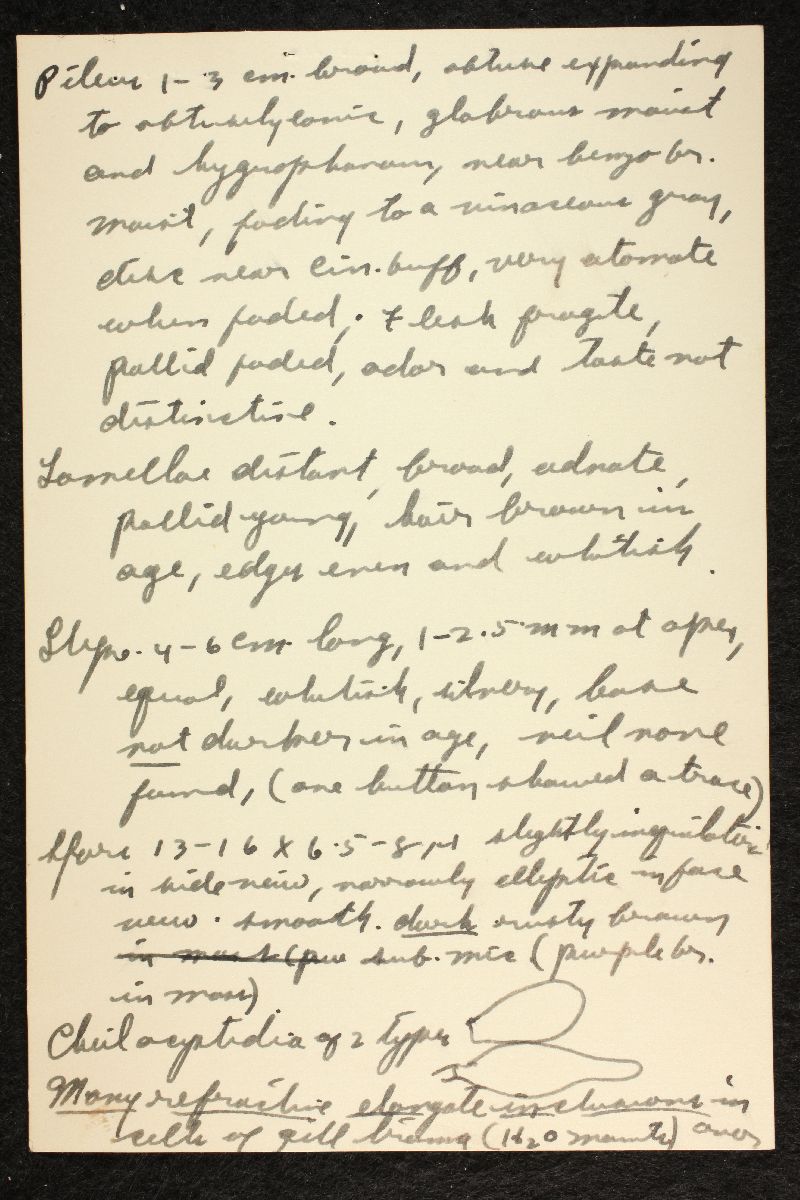 Pileus 1-3 cm. broad, obtuse expanding
to obtusely conic, glabrous moist
and hygrophanous, near benzo br.
moist, fading to a vinaceous gray,
disc near cin. buff, very atomate
when faded. Flesh fragile,
pallid faded, odor and taste not
distinctive.
Lamellae distant, broad, adnate,
pallid young, hair brown in
age, edges even and whitish.
Stipe. 4-6 cm. long, 1-2.5 mm at apex,
equal, whitish, silvery, base
not darker in age, veil none
found, (one button showed a trace)
Spores 13-16 X 6.5-8 µ slightly inequilateral
in side view, narrowly elliptic in face
view. smooth. dark rusty brown
in mass (pur sub. mic (purple br.
in mass)
Cheilocystidia of 2 types
Many refractive elongate inclusions in
cells of gill trama (H2O mounts) over